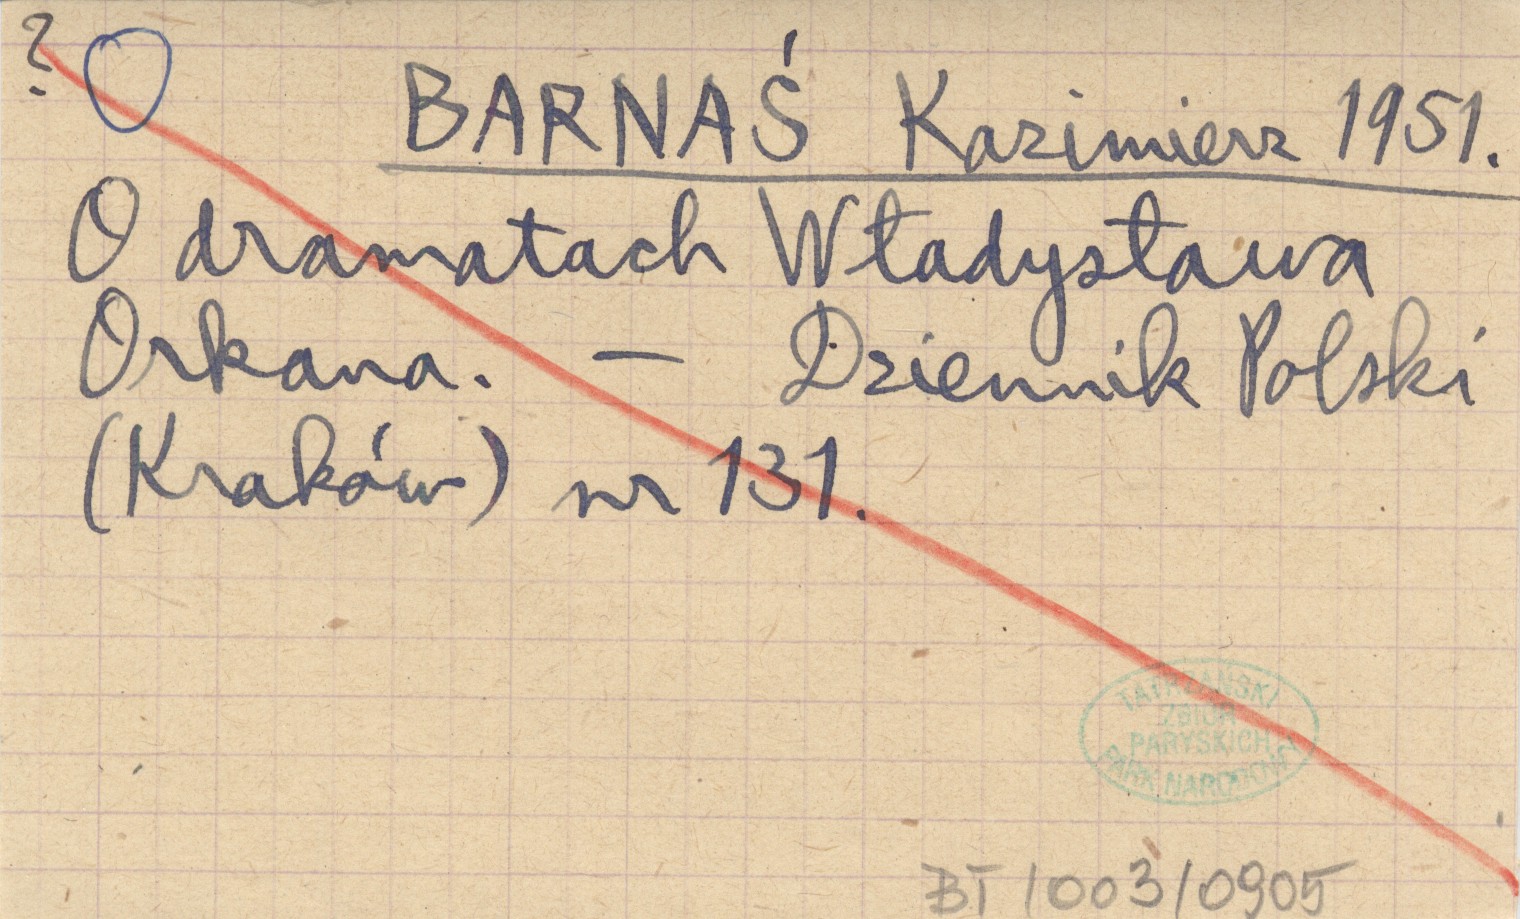 ?
BARNAŚ Kazimierz 1951.
O dramatach Władysława
Orkana. — Dziennik Polski
(Kraków) nr 131.
TATRZAŃSKI
ZBIÓR
PARYSKICH
PARK NARODOWY
BT/003/0905